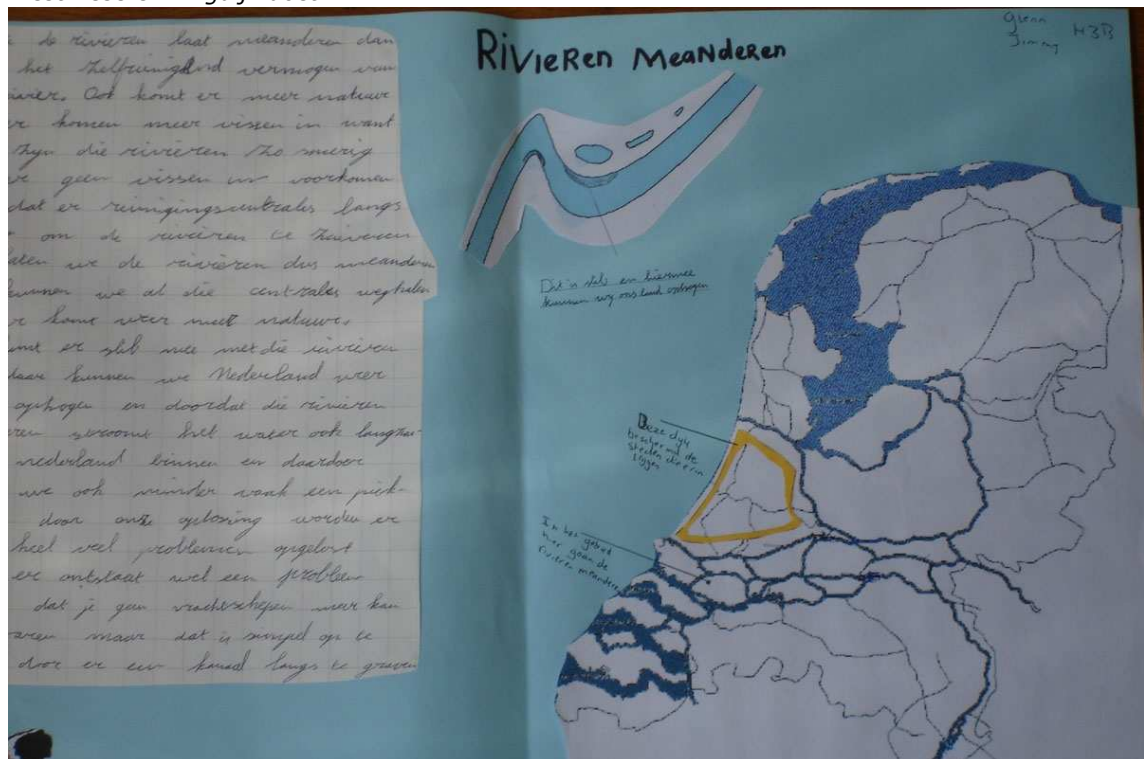 de rivieren laat meanderen dan
het zelfreinigend vermogen van
Ook komt er meer natuur
komen meer vissen in want
zyn die rivieren zo smerig
geen vissen in voorkomen
dat er reinigingscentrales langs
om de rivieren te zuiveren
we de rivieren dus meanderen
kunnen we al die centrales weghalen
komt weer meer natuur.
er slib mee met die rivieren
daar kunnen we Nederland weer
ophogen en doordat die rivieren
stroomt het water ook
nederland binnen en daardoor
we ook minder vaak een piek-
door onze oplossing worden er
heel veel problemen opgelost
er ontstaat wel een probleem
dat je geen vrachtschepen meer kan
maar dat is simpel op te
door er een kanaal langs te graven
RiVieRen MeaNdeRen
Glenn
Jimmy
H3B
Dit is slib en hiermee
kunnen wy ons land ophogen
Deze dyk
beschermd de
steden die erin
liggen
In het gebied
hier gaan de
rivieren meanderen